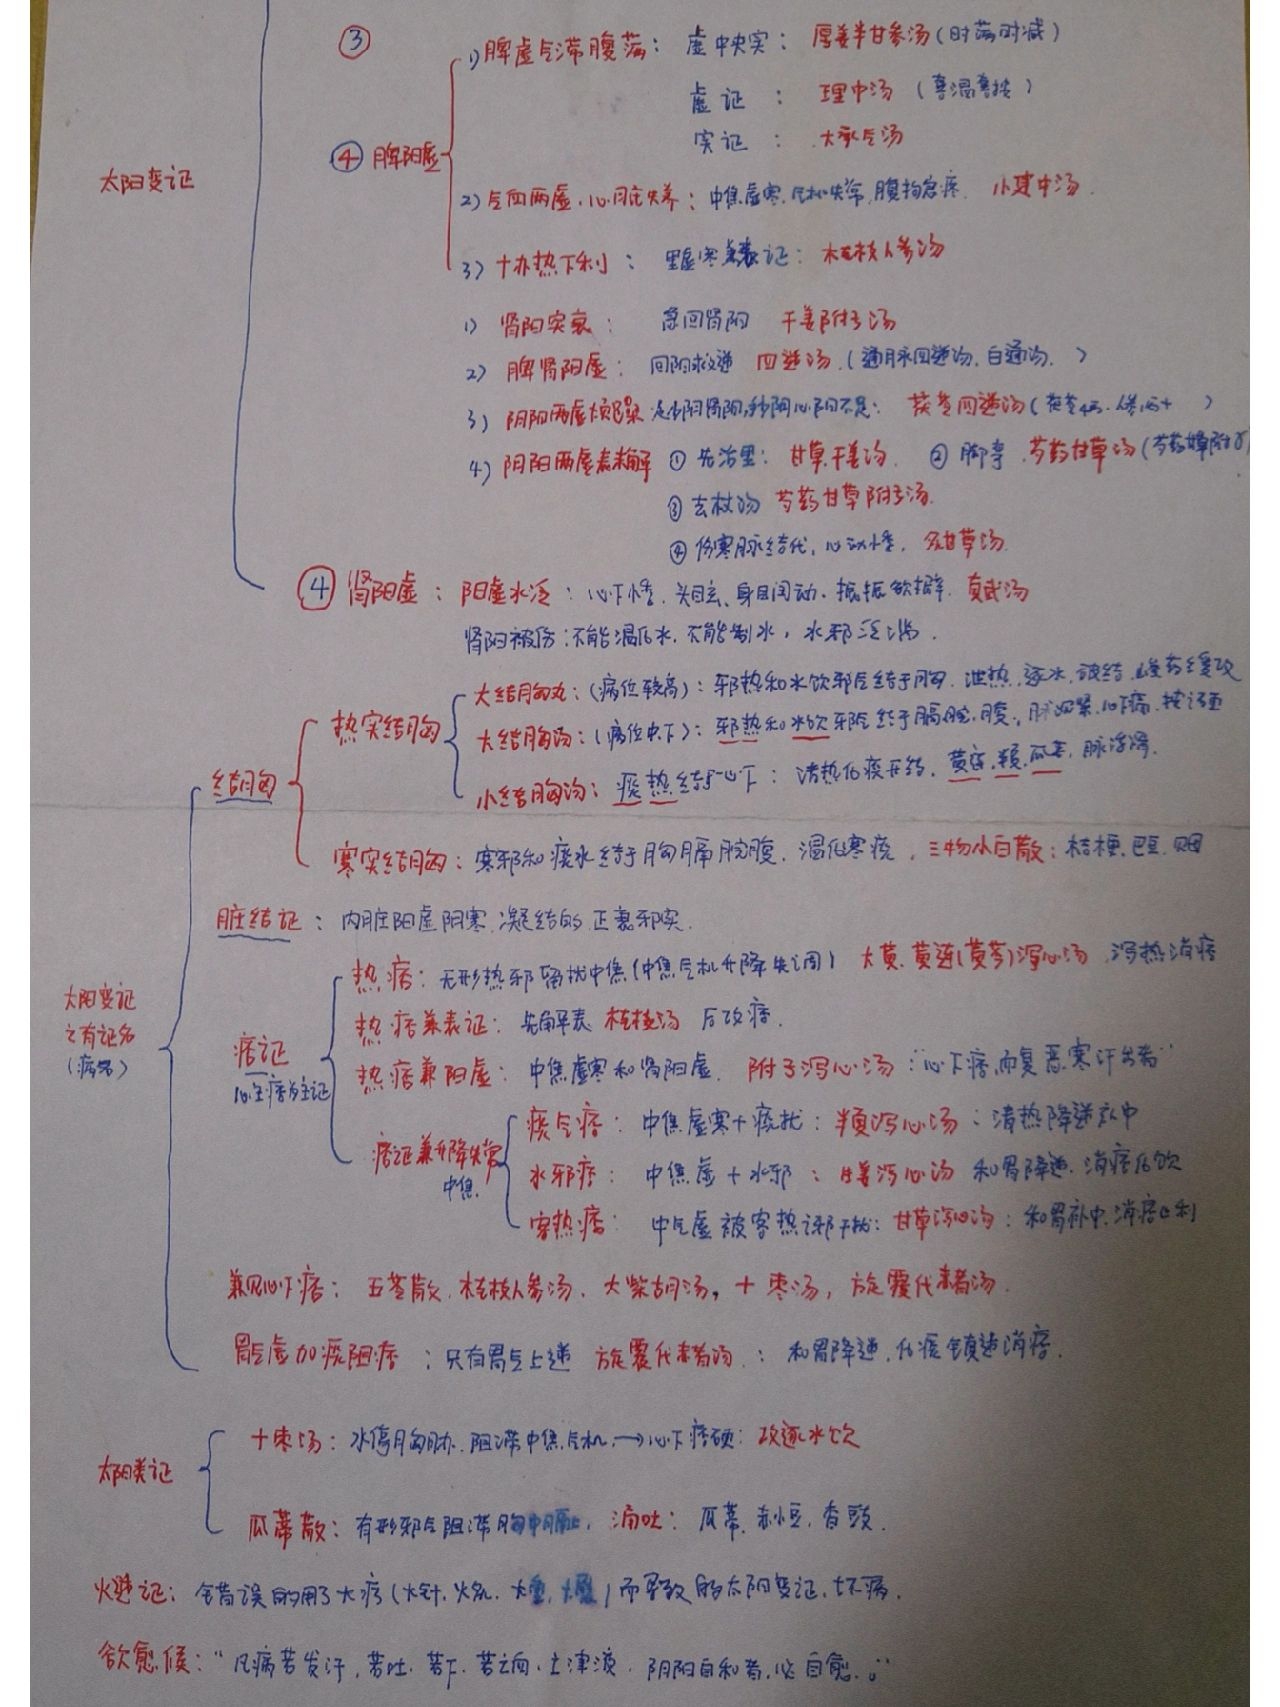 ③
1) 脾虚气滞腹满： 虚中夹实： 厚姜半甘参汤(时满时减)
虚证 ： 理中汤 (喜温喜按)
实证 ： 大承气汤
④ 脾阳虚
太阳变证
2) 气血两虚，心脏失养： 中焦虚寒，气机失常，腹拘急疼 小建中汤.
3) 十办热下利 ： 里虚寒兼表证： 桂枝人参汤
1) 肾阳突衰 ： 急回肾阳 干姜附子汤
2) 脾肾阳虚 ： 回阳救逆 四逆汤.(通脉四逆汤、白通汤. )
3) 阴阳两虚烦躁 足少阴肾阳,手少阴心阳不足： 茯苓四逆汤(茯苓4两、人参1两+ )
4) 阴阳两虚表未解 ① 先治里： 甘草干姜汤. ② 脚挛 芍药甘草汤
③ 去杖汤 芍药甘草附子汤.
④ 伤寒脉结代，心动悸. 炙甘草汤.
④ 肾阳虚 ： 阳虚水泛 ： 心下悸、头目玄、身目闰动、振振欲擗. 真武汤
肾阳被伤：不能温化水、不能制水，水邪泛滥.
大结胸丸：(病位较高)：邪热和水饮邪气结于胸. 泄热、逐水、破结、峻药缓攻
热实结胸 大结胸汤：(病位中下)：邪热和水饮邪气结于膈脘、腹，脉沉紧、心下痛、按之硬
结胸
小结胸汤：痰热结于心下 ： 清热化痰开结. 黄连、半夏、瓜蒌，脉浮滑.
寒实结胸：寒邪和痰水结于胸膈脘腹、温化寒痰，三物小白散：桔梗、巴豆、贝母
脏结证 ： 内脏阳虚阴寒、凝结的 正衰邪实.
热痞：无形热邪骚扰中焦(中焦气机升降失调) 大黄、黄连(黄芩)泻心汤 泻热消痞
太阳变证
之有证名
(病名)
热痞兼表证：先解表 桂枝汤 后攻痞.
痞证
心下痞为主证
热痞兼阳虚：中焦虚寒和肾阳虚. 附子泻心汤 ：“心下痞,而复恶寒汗出者”
痰气痞 ： 中焦虚寒+痰扰：半夏泻心汤：清热降逆补中
痞证兼升降失常
中焦
水邪痞 ： 中焦虚+水邪 ： 生姜泻心汤 和胃降逆、消痞化饮
客热痞： 中气虚被客热邪干扰：甘草泻心汤：和胃补中、消痞止利
兼见心下痞： 五苓散、桂枝人参汤、大柴胡汤，十枣汤，旋覆代赭汤.
胃气虚加痰阻痞 ：只有胃气上逆 旋覆代赭汤 ： 和胃降逆，化痰镇逆消痞.
太阳类证
十枣汤：水停胸胁、阻滞中焦气机→心下痞硬：攻逐水饮
瓜蒂散：有形邪气阻滞胸中膈上，涌吐： 瓜蒂、赤小豆、香豉.
火逆证：错误的用了火疗(火针、火灸、火熏、火熨)而导致的太阳变证、坏病.
欲愈候：“凡病若发汗，若吐、若下、若亡血、亡津液. 阴阳自和者，必自愈.。”